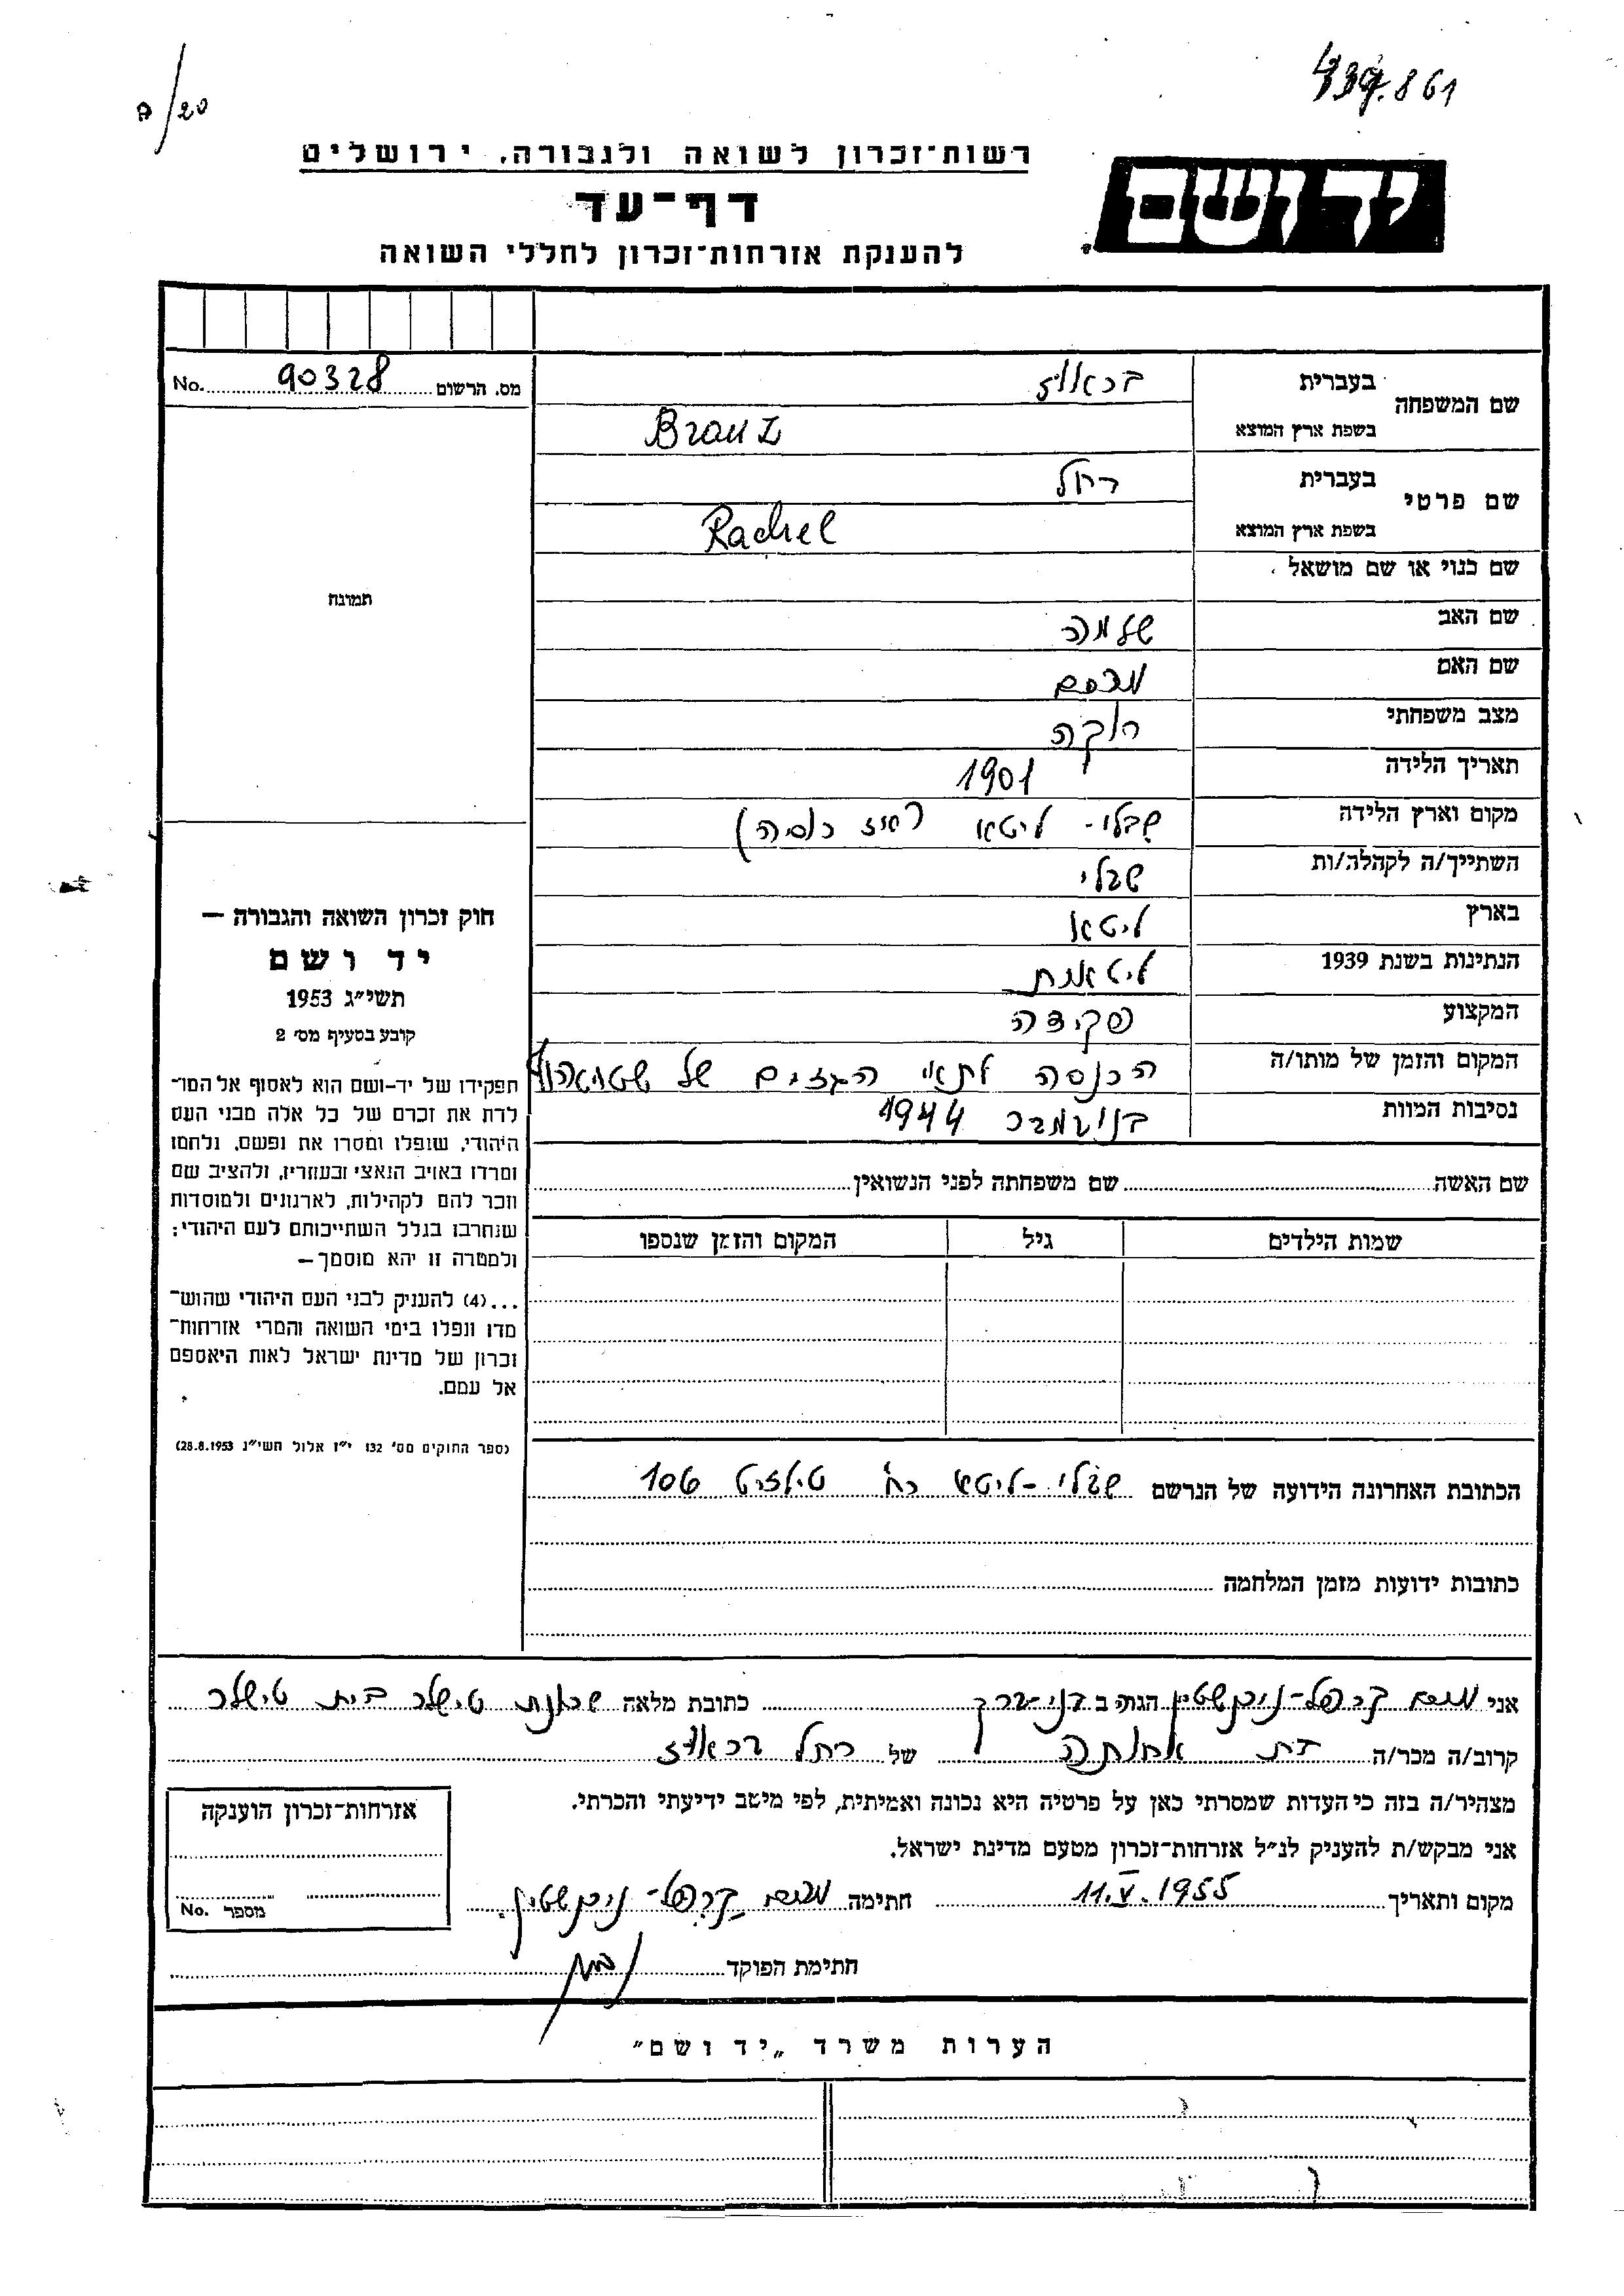 439.861
a/20
יד ושם
רשות־זכרון לשואה ולגבורה, ירושלים
דף־עד
להענקת אזרחות־זכרון לחללי השואה
מס. הרשום 90328 No.
שם המשפחה
בעברית בראוז
בשפת ארץ המוצא Brauz
שם פרטי
בעברית רחל
בשפת ארץ המוצא Rachel
שם כנוי או שם מושאל
שם האב שלמה
שם האם מרים
מצב משפחתי רוקה
תאריך הלידה 1901
מקום וארץ הלידה שבלי - ליטא (אז רוסיה)
השתייך/ה לקהלה/ות שבלי
בארץ ליטא
הנתינות בשנת 1939 ליטאית
המקצוע פקידה
המקום והזמן של מותו/ה הכנסה לתאי הגזים של שטוטהוף
נסיבות המוות בנובמבר 1944
שם האשה שם משפחתה לפני הנשואין
שמות הילדים גיל המקום והזמן שנספו
הכתובת האחרונה הידועה של הנרשם שבלי - ליטא רח' טילזיט 106
כתובות ידועות מזמן המלחמה
תמונה
חוק זכרון השואה והגבורה —
יד ושם
תשי״ג 1953
קובע בסעיף מס׳ 2
תפקידו של יד-ושם הוא לאסוף אל המו־
לדת את זכרם של כל אלה מבני העם
היהודי, שנפלו ומסרו את נפשם, נלחמו
ומרדו באויב הנאצי ובעוזריו, ולהציב שם
וזכר להם לקהילות, לארגונים ולמוסדות
שנחרבו בגלל השתייכותם לעם היהודי;
ולמטרה זו יהא מוסמך —
...(4) להעניק לבני העם היהודי שהוש־
מדו ונפלו בימי השואה והמרי אזרחות־
זכרון של מדינת ישראל לאות היאספם
אל עמם.
(ספר החוקים מס׳ 132 י״ז אלול תשי״ג 28.8.1953)
אני מרים קרפל - הגר/ה ב בני-ברק כתובת מלאה שכונת טישלר בית טישלר
קרוב/ה מכר/ה בת אחותה של רחל בראוז
מצהיר/ה בזה כי העדות שמסרתי כאן על פרטיה היא נכונה ואמיתית, לפי מיטב ידיעתי והכרתי.
אני מבקש/ת להעניק לנ״ל אזרחות־זכרון מטעם מדינת ישראל.
מקום ותאריך 11.V.1955 חתימה מרים קרפל -
חתימת הפוקד
אזרחות־זכרון הוענקה
מספר No.
הערות משרד „יד ושם״